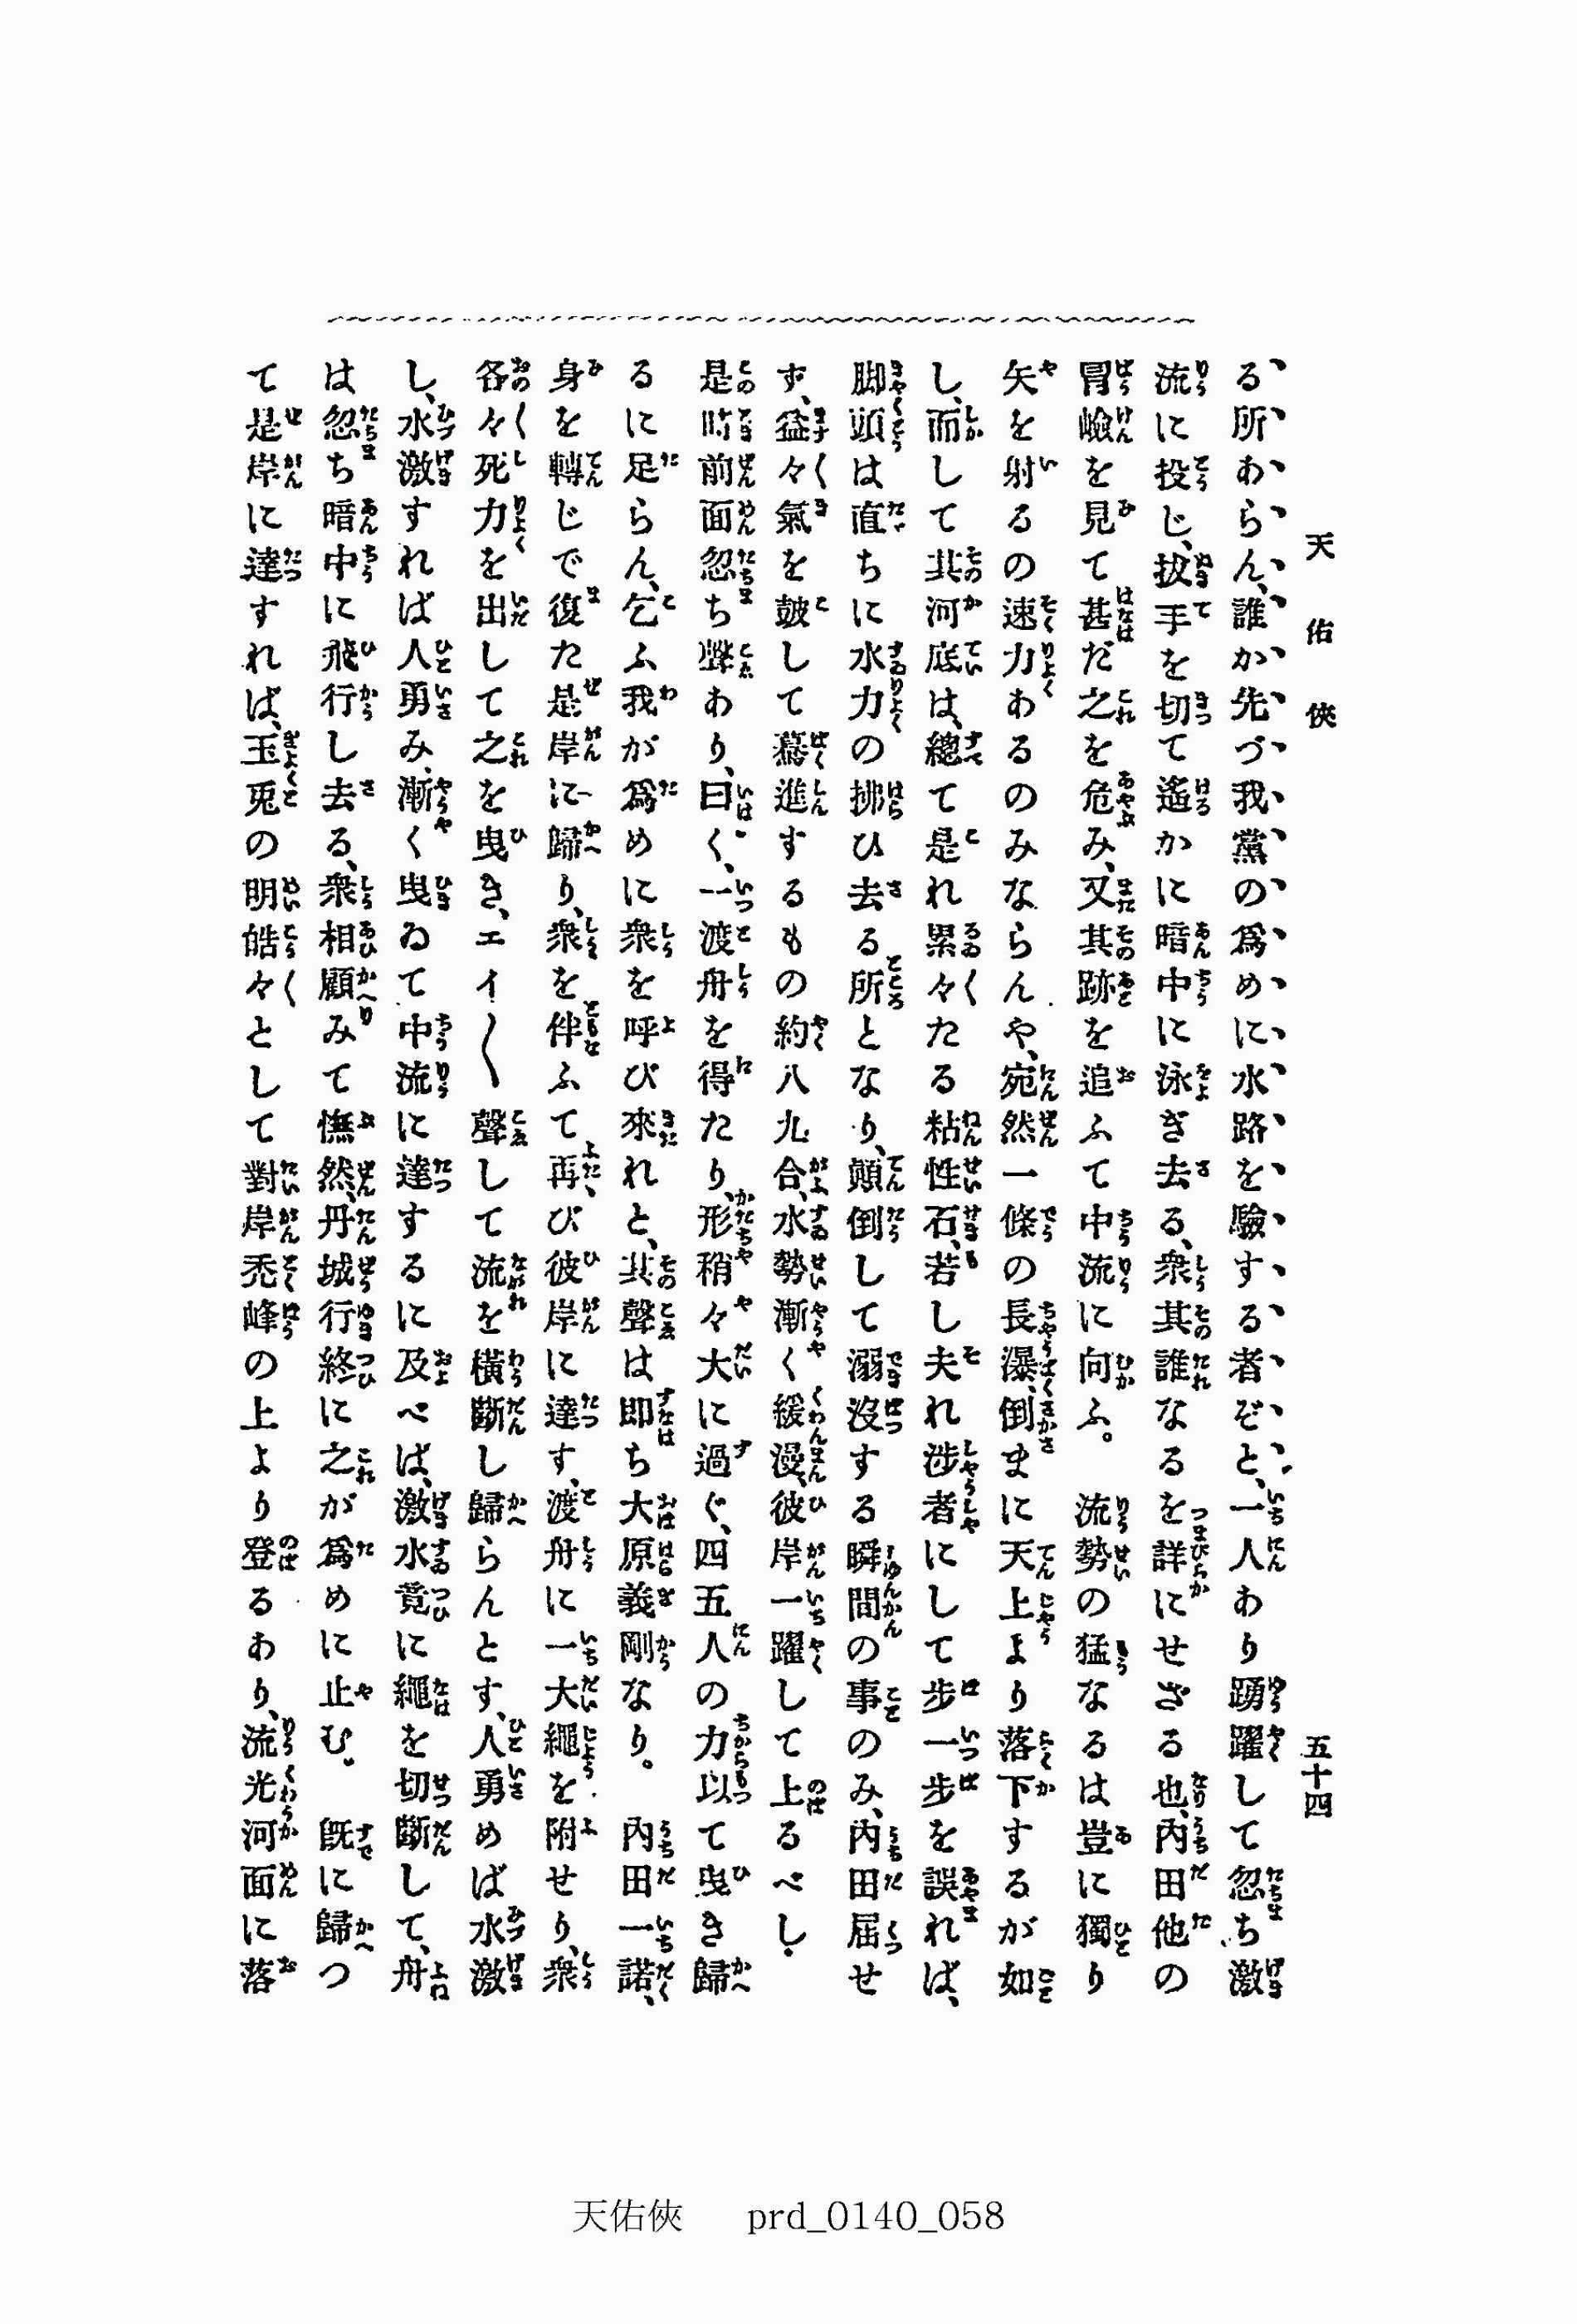 天佑俠
五十四
る所あらん、誰か先づ我黨の爲めに水路を驗する者ぞと、一人あり踴躍して忽ち激
流に投じ、拔手を切て遙かに暗中に泳ぎ去る、衆其誰なるを詳にせざる也、內田他の
冒嶮を見て甚だ之を危み、又其跡を追ふて中流に向ふ。流勢の猛なるは豈に獨り
矢を射るの速力あるのみならんや、宛然一條の長瀑、倒まに天上より落下するが如
し、而して其河底は、總て是れ累々たる粘性石、若し夫れ涉者にして步一步を誤れば、
脚頭は直ちに水力の拂ひ去る所となり、顚倒して溺沒する瞬間の事のみ、內田屈せ
ず、益々氣を皷して驀進するもの約八九合、水勢漸く緩漫、彼岸一躍して上るべし、
是時前面忽ち聲あり、曰く、一渡舟を得たり、形稍々大に過ぐ、四五人の力以て曳き歸
るに足らん、乞ふ我が爲めに衆を呼び來れと、其聲は卽ち大原義剛なり。內田一諾、
身を轉じで復た是岸に歸り、衆を伴ふて再び彼岸に達す、渡舟に一大繩を附せり、衆
各々死力を出して之を曳き、エイ〱聲して流を橫斷し歸らんとす、人勇めば水激
し、水激すれば人勇み、漸く曳ゐて中流に達するに及べば、激水竟に繩を切斷して、舟
は忽ち暗中に飛行し去る、衆相顧みて憮然、丹城行終に之が爲めに止む。旣に歸つ
て是岸に達すれば、玉兎の明皓々として對岸禿峰の上より登るあり、流光河面に落
天佑俠 prd_0140_058